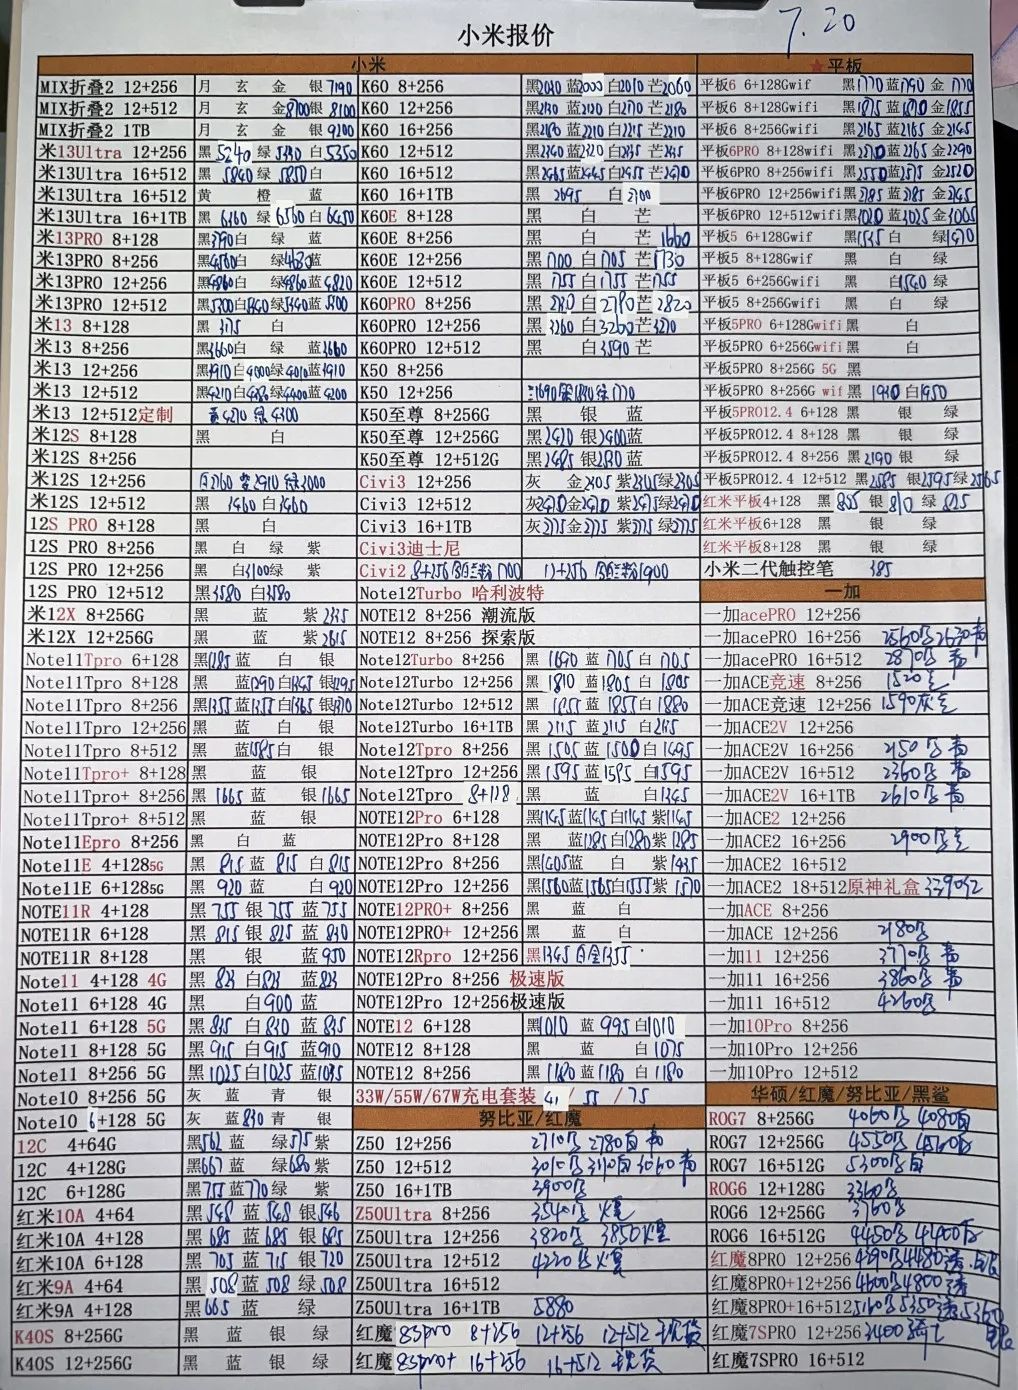 7.20
小米报价
小米
★平板
MIX折叠2 12+256 月 玄 金 银7190
MIX折叠2 12+512 月 玄 金8700银 8100
MIX折叠2 1TB 月 玄 金 银9200
米13Ultra 12+256 黑5240 绿 白5350
米13Ultra 16+512 黑 5840 绿 5850白
米13Ultra 16+512 黄 橙 蓝
米13Ultra 16+1TB 黑 6160 绿6560白6450
米13PRO 8+128 黑3790白 绿 蓝
米13PRO 8+256 黑 白 绿4630蓝
米13PRO 12+256 黑4860白 绿4860蓝4820
米13PRO 12+512 黑5300白 绿 蓝
米13 8+128 黑 3175 白
米13 8+256 黑3660白 绿 蓝3660
米13 12+256 黑3910白4000绿4010蓝3910
米13 12+512 黑4210白 绿4400蓝4200
米13 12+512定制 黄4270 绿4300
米12S 8+128 黑 白
米12S 8+256
米12S 12+256 白2760 紫2910 绿3000
米12S 12+512 黑 白
12S PRO 8+128 黑 白
12S PRO 8+256 黑 白 绿 紫
12S PRO 12+256 黑 白3100绿 紫
12S PRO 12+512 黑3580 白3580
米12X 8+256G 黑 蓝 紫
米12X 12+256G 黑 蓝 紫2615
Note11Tpro 6+128 黑1285蓝 白 银
Note11Tpro 8+128 黑 蓝1290白 银1295
Note11Tpro 8+256 黑1355蓝1355白1365银1370
Note11Tpro 12+256 黑 蓝 白 银
Note11Tpro 8+512 黑 蓝1585白 银
Note11Tpro+ 8+128 黑 蓝 银
Note11Tpro+ 8+256 黑 1665 蓝 银1665
Note11Tpro+ 8+512 黑 蓝 银
Note11Epro 8+256 黑 白 蓝
Note11E 4+1285G 黑 815 蓝 815 白815
Note11E 6+1285G 黑 920 蓝 白920
NOTE11R 4+128 黑 755 银 755 蓝755
NOTE11R 6+128 黑 815 银 825 蓝830
NOTE11R 8+128 黑 银 蓝950
Note11 4+128 4G 黑 823 白823 蓝823
Note11 6+128 4G 黑 白900 蓝
Note11 6+128 5G 黑 835 白830 蓝835
Note11 8+128 5G 黑 915 白915 蓝910
Note11 8+256 5G 黑 1025白1025 蓝1035
Note10 8+256 5G 灰 蓝 青 银
Note10 6+128 5G 灰 蓝830 青 银
12C 4+64G 黑562 蓝 绿575 紫
12C 4+128G 黑667 蓝 绿680 紫
12C 6+128G 黑755 蓝770绿 紫
红米10A 4+64 黑 548 蓝 548 银546
红米10A 4+128 黑 685 蓝 685 银685
红米10A 6+128 黑 705 蓝 715 银720
红米9A 4+64 黑 508 蓝 508 绿 508
红米9A 4+128 黑 665 蓝 绿
K40S 8+256G 黑 蓝 银 绿
K40S 12+256G 黑 蓝 银 绿
K60 8+256 黑2030 蓝2000 白2010 芒2060
K60 12+256 黑2130 蓝2120 白2170 芒2180
K60 16+256 黑2180 蓝2210 白2215 芒2210
K60 12+512 黑2340蓝2320白2335 芒
K60 16+512 黑2465蓝2445白2455 芒2470
K60 16+1TB 黑 2695 白 2700
K60E 8+128 黑 白 芒
K60E 8+256 黑 白 芒 1660
K60E 12+256 黑 1700 白 1705 芒1730
K60E 12+512 黑 1755 白1755 芒1755
K60PRO 8+256 黑 白2780 芒2820
K60PRO 12+256 黑 3260 白3260 芒3270
K60PRO 12+512 黑 白3590 芒
K50 8+256
K50 12+256
K50至尊 8+256G 黑 银 蓝
K50至尊 12+256G 黑2420 银2400蓝
K50至尊 12+512G 黑2485 银2830 蓝
Civi3 12+256 灰 金 2305 紫2305绿2305
Civi3 12+512 灰2470金2470 紫2470绿2470
Civi3 16+1TB 灰2775金2775 紫2775绿2775
Civi3迪士尼
Civi2 8+256 1700 12+256 1900
Note12Turbo 哈利波特
NOTE12 8+256 潮流版
NOTE12 8+256 探索版
Note12Turbo 8+256 黑 1690 蓝 1705 白 1705
Note12Turbo 12+256 黑 1810 蓝 1805 白 1805
Note12Turbo 12+512 黑 1855 蓝 1855白1880
Note12Turbo 16+1TB 黑 2115 蓝 2115 白
Note12Tpro 8+256 黑 1505 蓝1500白1495
Note12Tpro 12+256 黑 1595 蓝1595 白1595
Note12Tpro 8+128 黑 蓝 白1345
NOTE12Pro 6+128 黑1145蓝1145白1145紫1145
NOTE12Pro 8+128 黑 蓝1285白1280紫1285
NOTE12Pro 8+256 黑1405蓝 白 紫1435
NOTE12Pro 12+256 黑1560蓝1565白1555紫1570
NOTE12PRO+ 8+256 黑 蓝 白
NOTE12PRO+ 12+256 黑 蓝 白
NOTE12Rpro 12+256 黑1345 白金1355
NOTE12Pro 8+256 极速版
NOTE12Pro 12+256极速版
NOTE12 6+128 黑1010 蓝 995 白1010
NOTE12 8+128 黑 蓝 白 1075
NOTE12 8+256 黑 1180 蓝1180 白 1180
33W/55W/67W充电套装 41 / 55 / 75
努比亚/红魔
Z50 12+256 2710 2780白
Z50 12+512 3010 3110白 3060
Z50 16+1TB 3900
Z50Ultra 8+256 3540
Z50Ultra 12+256 3820 3850
Z50Ultra 12+512 4220
Z50Ultra 16+512
Z50Ultra 16+1TB 5880
红魔 8Spro 8+256 12+256 12+512 现货
红魔 8Spro+ 16+256 16+512 现货
平板6 6+128Gwif 黑1770蓝1790 金 1770
平板6 8+128Gwifi 黑1875 蓝1870 金1855
平板6 8+256Gwifi 黑2165 蓝2165 金2145
平板6PRO 8+128wifi 黑2270 蓝2265 金2290
平板6PRO 8+256wifi 黑2550蓝2575 金2520
平板6PRO 12+256wifi黑2785 蓝2785 金2745
平板6PRO 12+512wifi黑3020 蓝3025 金3005
平板5 6+128Gwif 黑1535 白 绿1470
平板5 8+128Gwif 黑 白 绿
平板5 6+256Gwifi 黑 白1540 绿
平板5 8+256Gwifi 黑 白 绿
平板5PRO 6+128Gwifi 黑 白
平板5PRO 6+256Gwifi 黑 白
平板5PRO 8+256G 5G 黑
平板5PRO 8+256G wif 黑 1930 白1950
平板5PRO12.4 6+128 黑 银 绿
平板5PRO12.4 8+128 黑 银 绿
平板5PRO12.4 8+256 黑2190 银 绿
平板5PRO12.4 12+512 黑2585 银2595绿2565
红米平板4+128 黑 805 银810 绿 825
红米平板6+128 黑 银 绿
红米平板8+128 黑 银 绿
小米二代触控笔 385
一加
一加acePRO 12+256
一加acePRO 16+256 2560 2630
一加acePRO 16+512 2870
一加ACE竞速 8+256 1520
一加ACE竞速 12+256 1590灰
一加ACE2V 12+256
一加ACE2V 16+256 2150
一加ACE2V 16+512 2360
一加ACE2V 16+1TB 2610
一加ACE2 12+256
一加ACE2 16+256 2900
一加ACE2 16+512
一加ACE2 18+512原神礼盒
一加ACE 8+256
一加ACE 12+256 2180
一加11 12+256 3770
一加11 16+256 3860
一加11 16+512 4260
一加10Pro 8+256
一加10Pro 12+256
一加10Pro 12+512
华硕/红魔/努比亚/黑鲨
ROG7 8+256G 4060 4080白
ROG7 12+256G 4550 4560白
ROG7 16+512G 5300 白
ROG6 12+128G 3360
ROG6 12+256G 3760
ROG6 16+512G 4450 4400白
红魔8PRO 12+256 4390 4480透
红魔8PRO+12+256 4600 4800透
红魔8PRO+16+512 5160 5350透5360
红魔7SPRO 12+256 3400
红魔7SPRO 16+512